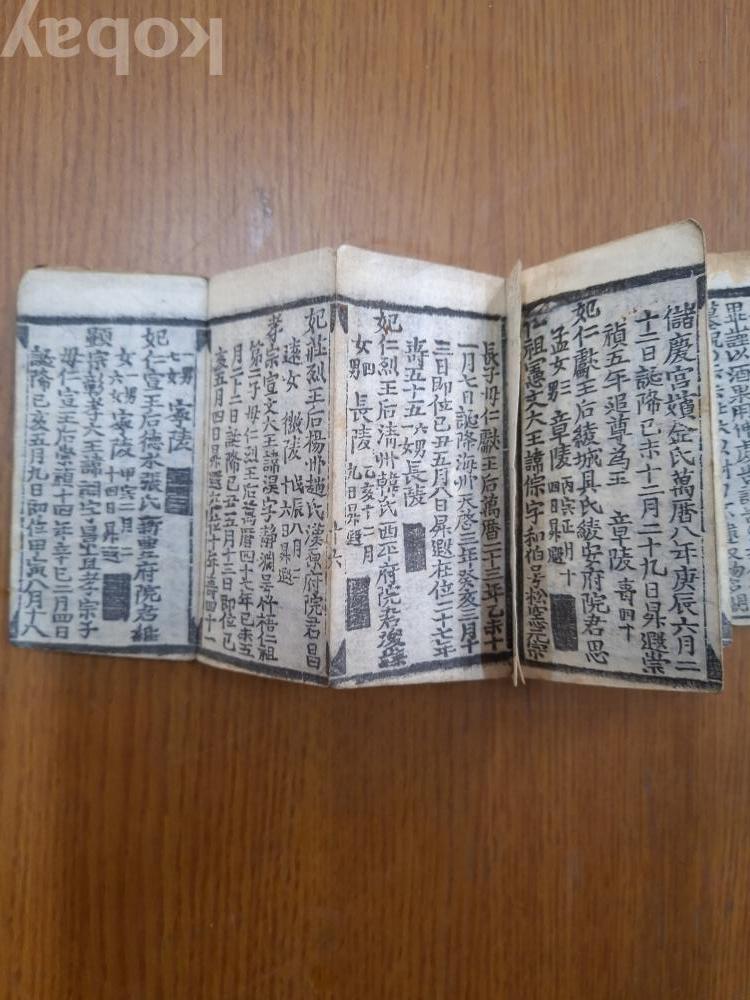 kobay
儲慶宮嬪金氏萬曆八年庚辰六月二
十二日誕降己未十二月二十九日昇遐崇
禎五年追尊為王 章陵 壽四十
妃仁獻王后綾城具氏綾安府院君思
孟女 男三 章陵 丙寅正月十四日昇遐
仁祖憲文大王諱倧字和伯号松窓元宗
長子母仁獻王后萬曆二十三年乙未十
一月七日誕降海州天啓三年癸亥三月十
三日即位己丑五月八日昇遐在位二十七年
壽五十五 六男一女 長陵
妃仁烈王后清州韓氏西平府院君浚謙
女 四男 長陵 乙亥十二月九日昇遐
妃莊烈王后楊州趙氏漢原府院君昌
遠女 徽陵 戊辰八月二十六日昇遐
孝宗宣文大王諱淏字静淵号竹梧仁祖
第二子母仁烈王后萬曆四十七年己未五
月二十二日誕降己丑五月十三日即位己
亥五月四日昇遐在位十年壽四十一
一男七女 寧陵
妃仁宣王后德水張氏新豊府院君維
女 一男六女 寧陵 甲寅二月二十四日昇遐
顯宗彰孝大王諱棩字景直孝宗子
母仁宣王后崇禎十四年辛巳二月四日
誕降己亥五月九日即位甲寅八月十八